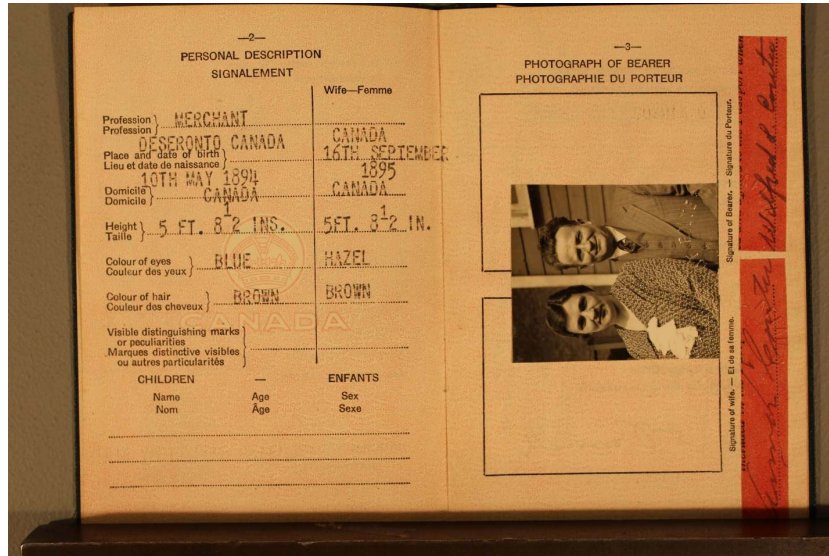 —2—
PERSONAL DESCRIPTION
SIGNALEMENT
Wife—Femme
Profession
Profession
MERCHANT
DESERONTO CANADA
CANADA
Place and date of birth
Lieu et date de naissance
16TH SEPTEMBER
1895
10TH MAY 1894
Domicile
Domicile
CANADA
CANADA
Height
Taille
5 FT. 8 1/2 INS.
5FT. 8 1/2 IN.
Colour of eyes
Couleur des yeux
BLUE
HAZEL
Colour of hair
Couleur des cheveux
BROWN
BROWN
CANADA
Visible distinguishing marks
or peculiarities
Marques distinctive visibles
ou autres particularités
CHILDREN — ENFANTS
Name Age Sex
Nom Âge Sexe
—3—
PHOTOGRAPH OF BEARER
PHOTOGRAPHIE DU PORTEUR
Signature of Bearer. — Signature du Porteur.
Wilfred
Signature of wife. — Et de sa femme.